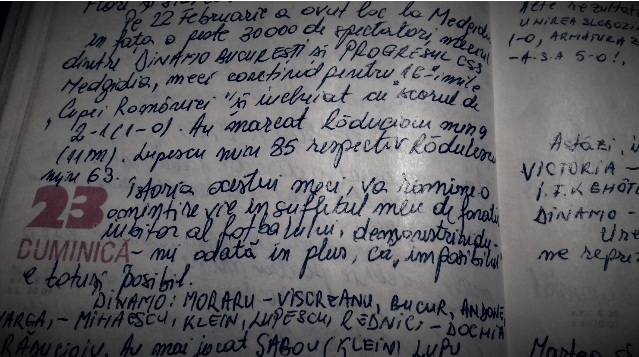 Pe 22 Februarie a avut loc la Medgidia
în fața a peste 30000 de spectatori, meciul
dintre DINAMO BUCUREȘTI și PROGRESUL CSS
Medgidia, meci contînd pentru 16-imile
"Cupei României" și încheiat cu scorul de
2-1 (1-0). Au marcat Răducioiu min 9
(11m). Lupescu min 85 respectiv Rădulescu
min 63.
Istoria acestui meci, va rămîne o
23
amintire vie în sufletul meu de fanatic
iubitor al fotbalului, demonstrîndu-
DUMINICĂ
-mi odată în plus, că, "imposibilul"
e totuși posibil.
DINAMO: MORARU - VISCREANU, BUCUR, ANDONE,
VARGA, - MIHĂESCU, KLEIN, LUPESCU, REDNIC, - DOCHIA
RĂDUCIOIU. Au mai jucat SABOU (KLEIN) LUPU
Alte rezultate
UNIREA SLOBOZIA
1-0, ARMĂTURA Z
-A.S.A 5-0!,
Astăzi,
VICTORIA -
DINAMO -
me